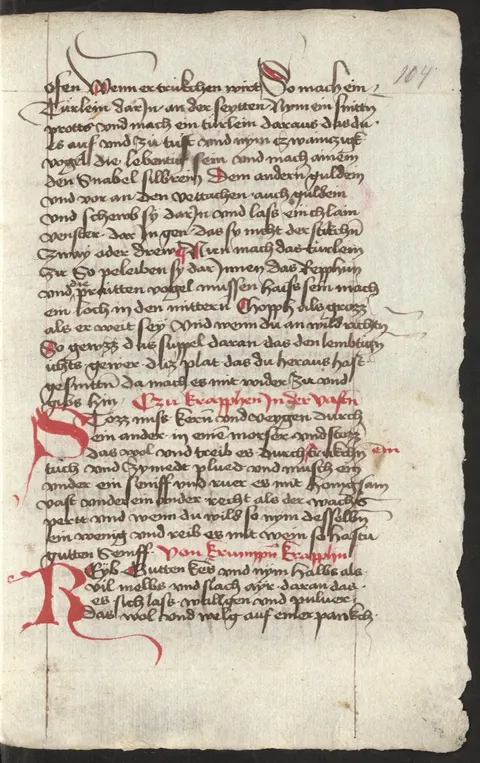 104
ofen Wenn er trukchen wirt So mach ein
Türlein darJn · an der seytten Nym ein snittn
protts vnd mach ein türlein daraus das du ·
es auf vnd zü tust vnd nym czwainczigk
vogel die lebentig sein vnd mach ainem
den Snabel silbrein Dem andern guldein
vnd vor an den vettachen auch guldein
vnd scheub sy darJn vnd lass ein chlain
venster dar Jn gen das sy nicht derstikchn
zway oder drew Nun mach das türlein
zü So peleiben sy dar Jnnen das Repphun
vnd die praitten vogel müssen haiss sein mach
ein loch in den mittern Chopph als gross
als er weit sey Vnd wenn du an wild richtn
So gewss d us süppel daran das den lembtign
nichts gewer
gesnittn da mach es mit wider zü vnd
gibs hin · Czu krapphen Jn der vasten
Stozz nuss kern vnd veygen durch
ein ander in ene morser vnd stozz
das wol vnd treib es durch trukchn ein
tuch vnd zymedt plued vnd misch ein
vnder ein seniff vnd ruer es mit honigsam
vast vnder ein ander recht als der wachs
pertt vnd wenn du wild so nym desselbn
ein wenig vnd reib es mit wein so hastu
gutten Seniff · Von krumppn krapphn
REyb Gutten kes vnd nym halbs als
vil melbs vnd slach ayr · daran das ·
es sich lass · wallgen vnd puluer ·
das wol vnd welg auf einer pankch ·